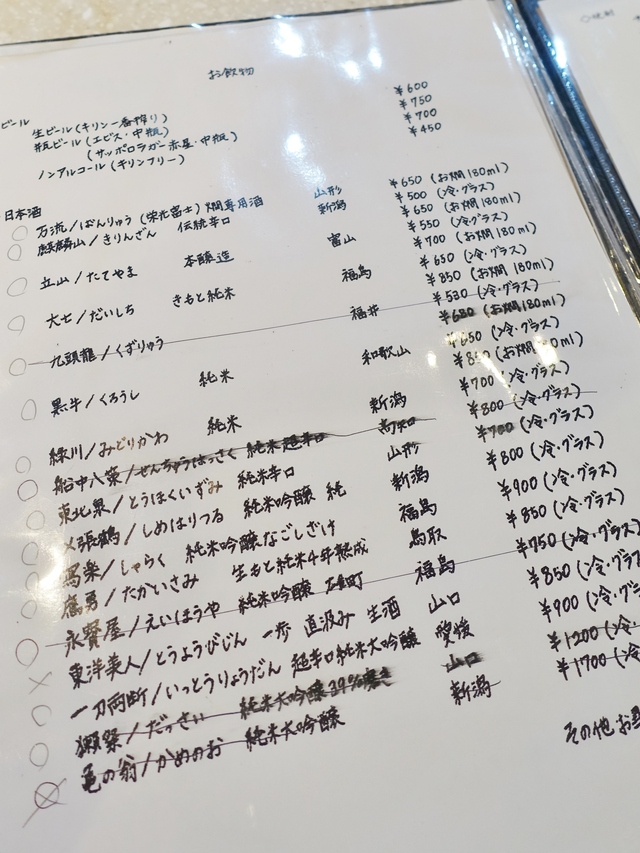 お飲物
ビール
生ビール(キリン一番搾り) ¥600
瓶ビール(エビス・中瓶) ¥750
(サッポロラガー赤星・中瓶) ¥700
ノンアルコール(キリンフリー) ¥450
日本酒
万流/ばんりゅう(栄光冨士)燗専用酒 山形 ¥650(お燗180ml)
麒麟山/きりんざん 伝統辛口 新潟 ¥500(冷・グラス)
¥650(お燗180ml)
立山/たてやま 本醸造 富山 ¥550(冷・グラス)
¥700(お燗180ml)
大七/だいしち きもと純米 福島 ¥650(冷・グラス)
¥850(お燗180ml)
九頭龍/くずりゅう 福井 ¥530(冷・グラス)
¥680(お燗180ml)
黒牛/くろうし 純米 和歌山 ¥650(冷・グラス)
¥850(お燗180ml)
緑川/みどりかわ 純米 新潟 ¥700(冷・グラス)
船中八策/せんちゅうはっさく 純米超辛口 高知 ¥800(冷・グラス)
東北泉/とうほくいずみ 純米辛口 山形 ¥700(冷・グラス)
〆張鶴/しめはりつる 純米吟醸 純 新潟 ¥800(冷・グラス)
寫楽/しゃらく 純米吟醸なごしざけ 福島 ¥900(冷・グラス)
鷹勇/たかいさみ 生もと純米4年熟成 鳥取 ¥850(冷・グラス)
永寶屋/えいほうや 純米吟醸 福島 ¥750(冷・グラス)
東洋美人/とうようびじん 一歩 直汲み 生酒 山口 ¥850(冷・グラ
一刀両断/いっとうりょうだん 超辛口純米大吟醸 愛媛 ¥900(冷・グラ
獺祭/だっさい 純米大吟醸39%磨き 山口 ¥1200(冷・
亀の翁/かめのお 純米大吟醸 新潟 ¥1700(冷
その他お